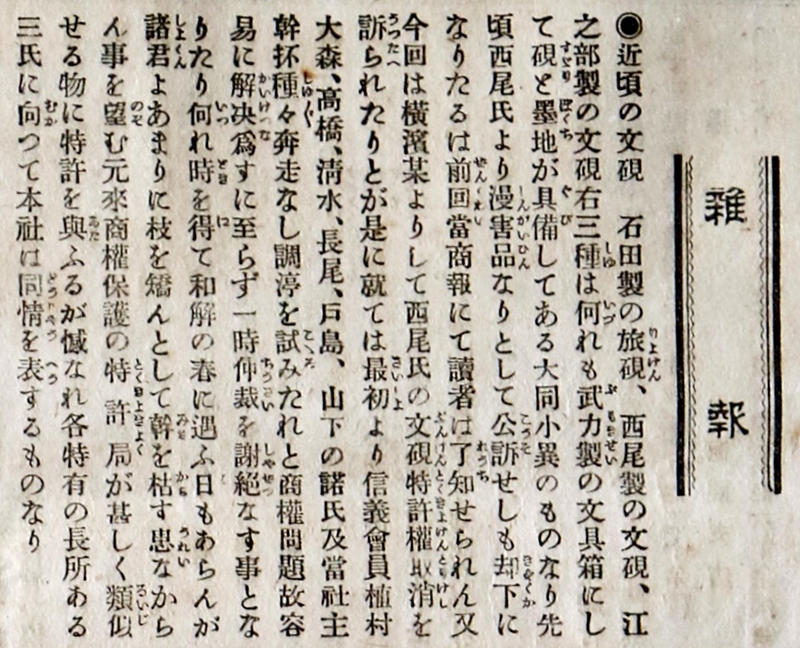 雜報
◉近頃の文硯　石田製の旅硯、西尾製の文硯、江
之部製の文硯右三種は何れも武力製の文具箱にし
て硯と墨地が具備してある大同小異のものなり先
頃西尾氏より漫害品なりとして公訴せしも却下に
なりたるは前回當商報にて讀者は了知せられん又
今回は橫濱某よりして西尾氏の文硯特許權取消を
訴られたりとが是に就ては最初より信義會員植村
大森、高橋、淸水、長尾、戸島、山下の諸氏及當社主
幹抔種々奔走なし調停を試みたれと商權問題故容
易に解决爲すに至らず一時仲裁を謝絕なす事とな
りたり何れ時を得て和解の春に遇ふ日もあらんが
諸君よあまりに枝を矯んとして幹を枯す患なから
ん事を望む元來商權保護の特許局が甚しく類似
せる物に特許を與ふるが憾なれ各特有の長所ある
三氏に向つて本社は同情を表するものなり